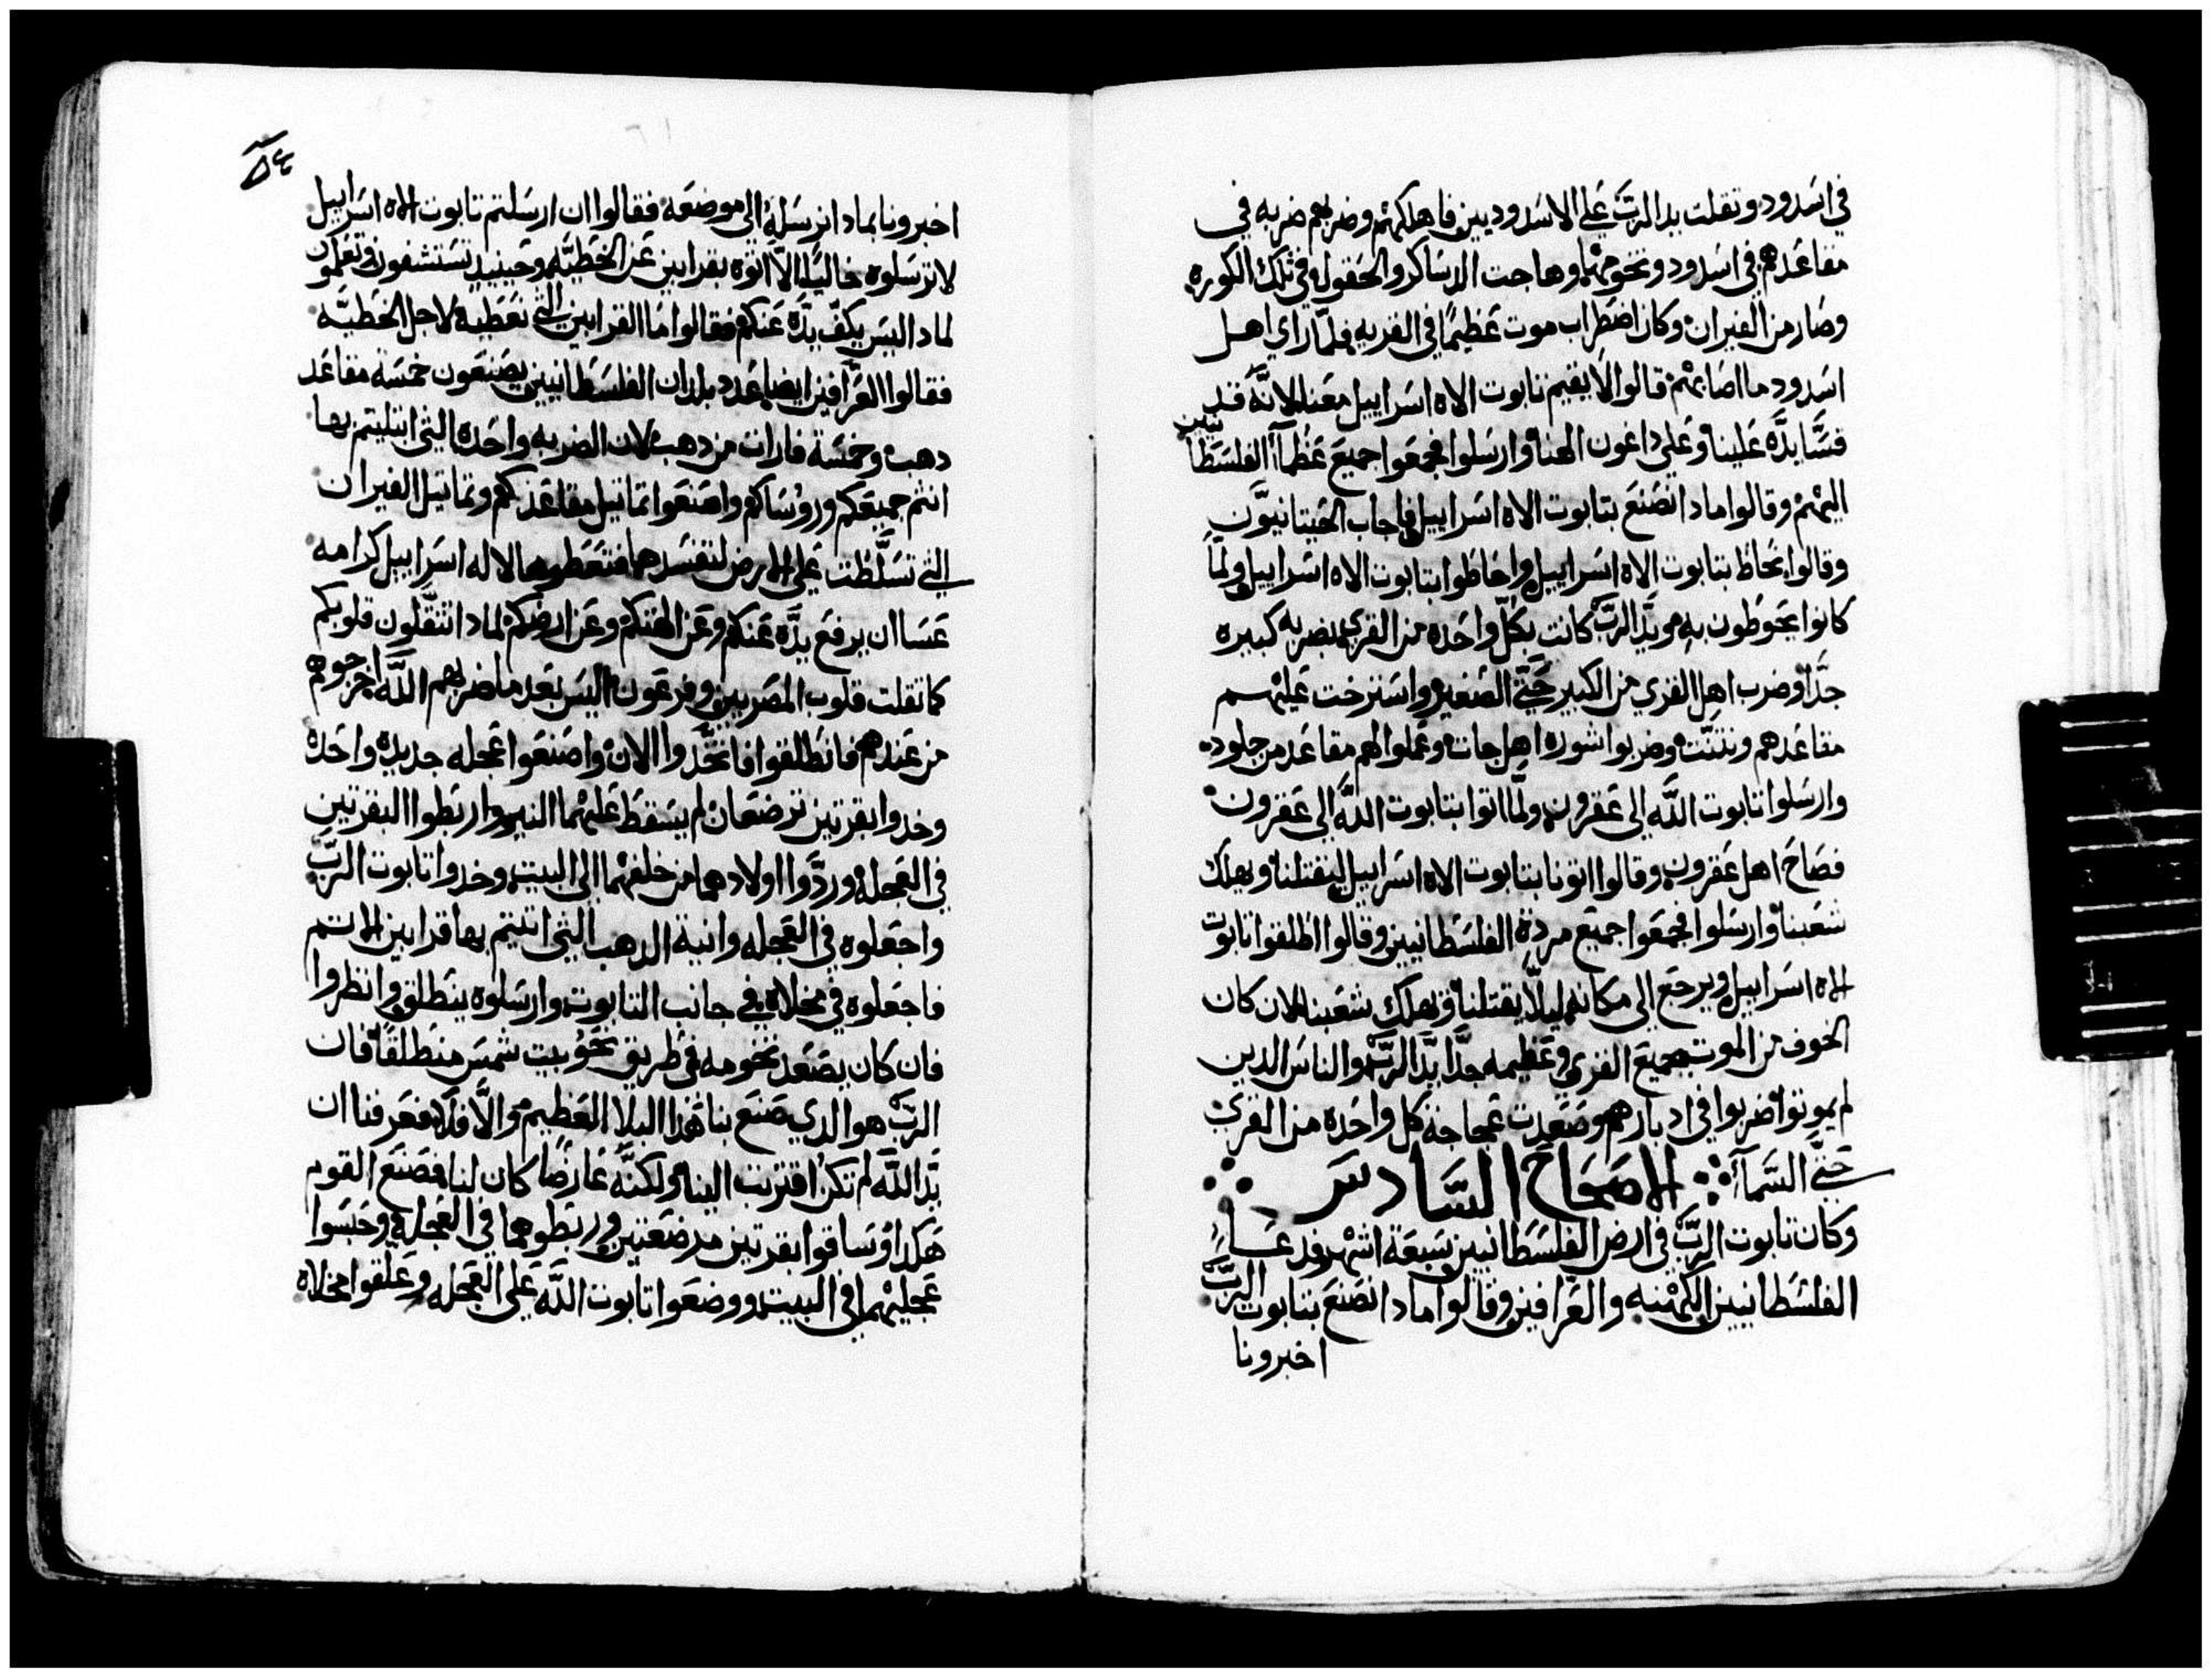 في اسدود وتقلت يد الرب علي الاسدوديين فاهلكهم وضربهم ضربه في
مقاعدهم في اسدود وتخومها وهاجت الدساكر والحقول وفي تلك الكوره
وصار من الفيران وكان اضطراب موت عظيمًا في القريه فلما راي اهل
اسدود ما اصابهم قالوا لا يقيم تابوت الاه اسراييل معنا لانه قد
قسا يده علينا وعلي داغون الهنا وارسلوا فجمعوا جميع عظمآ الفلسطا
نيين
اليهم وقالوا مادا نصنع بتابوت الاه اسراييل فاجاب الجيتانيون
وقالوا يحاط بتابوت الاه اسراييل واحاطوا بتابوت الاه اسراييل ولما
كانوا يحوطون به يد الرب كانت بكل واحده من القري بضربه كبيره
جدًا وضرب اهل القري من الكبير حتي الصغير واسترخت عليهم
مقاعدهم ونتنت وضربوا شوره اهل جات وعملوا لهم مقاعد من جلود
وارسلوا تابوت الله الي عقرون ولما اتوا بتابوت الله الي عقرون
فصاح اهل عقرون وقالوا اتونا بتابوت الاه اسراييل ليقتلنا ويهلك
شعبنا وارسلوا فجمعوا جميع مردة الفلسطانيين وقالوا اطلقوا تابوت
الاه اسراييل ويرجع الي مكانه ليلا يقتلنا ويهلك شعبنا لان كان
الخوف من الموت بجميع القري وعظيمه جدًا يد الرب والناس الدين
لم يموتوا ضربوا في ادبارهم وصعدت عجاجة كل واحده من القري
حتي السمآ الاصحاح السادس
وكان تابوت الرب في ارض الفلسطانيين سبعة اشهر ودعا
الفلسطانيين الكهنه والعرافين وقالوا مادا نصنع بتابوت الرب
اخبرونا
٥٤
اخبرونا بمادا نرسله الي موضعه فقالوا ان ارسلتم تابوت الاه اسراييل
لا ترسلوه خاليًا الا اتوه بقرابين عن الخطيه وحينيد تستشفون وتعلمون
لمادا ليس يكف يده عنكم فقالوا ما القرابين التي نعطيه لاجل الخطيه
فقالوا العرافين ايضا عدد بلدان الفلسطانيين يصنعون خمسة مقاعد
دهب وخمسة فارات من دهب لان الضربه واحده التي ابتليتم بها
انتم جميعكم وروساكم واصنعوا تماتيل مقاعدكم وتماتيل الفيران
التي تسلطت علي الارض لتفسدها فتعطوها لاله اسراييل كرامه
عسا ان يرفع يده عنكم وعن الهتكم وعن ارضكم لمادا تتقلون قلوبكم
كما تقلت قلوب المصريين وفرعون اليس بعد ما ضربهم الله اخرجوهم
من عندهم فانطلقوا فاتخدوا الان واصنعوا عجله جديده واحده
وخدوا بقرتين ترضعان لم يسقط عليهما النير واربطوا البقرتين
في العجله وردوا اولادهما من خلفهما الي البيت وخدوا تابوت الرب
واجعلوه في العجله وانية الدهب التي اتيتم بها قرابين الاتم
فاجعلوه في مخلاة في جانب التابوت وارسلوه ينطلق وانظروا
فان كان يصعد تخومه في طريق نحو بيت شمس منطلقًا فان
الرب هو الدي صنع بنا هدا البلا العظيم والا فلا فعرفنا ان
يد الله لم تكن اقتربت الينا ولكنه عارضًا كان لنا فصنع القوم
هكدا وساقوا بقرتين مرضعتين وربطوهما في العجله وحبسوا
عجليهما في البيت ووضعوا تابوت الله علي العجله وعلقوا مخلاه